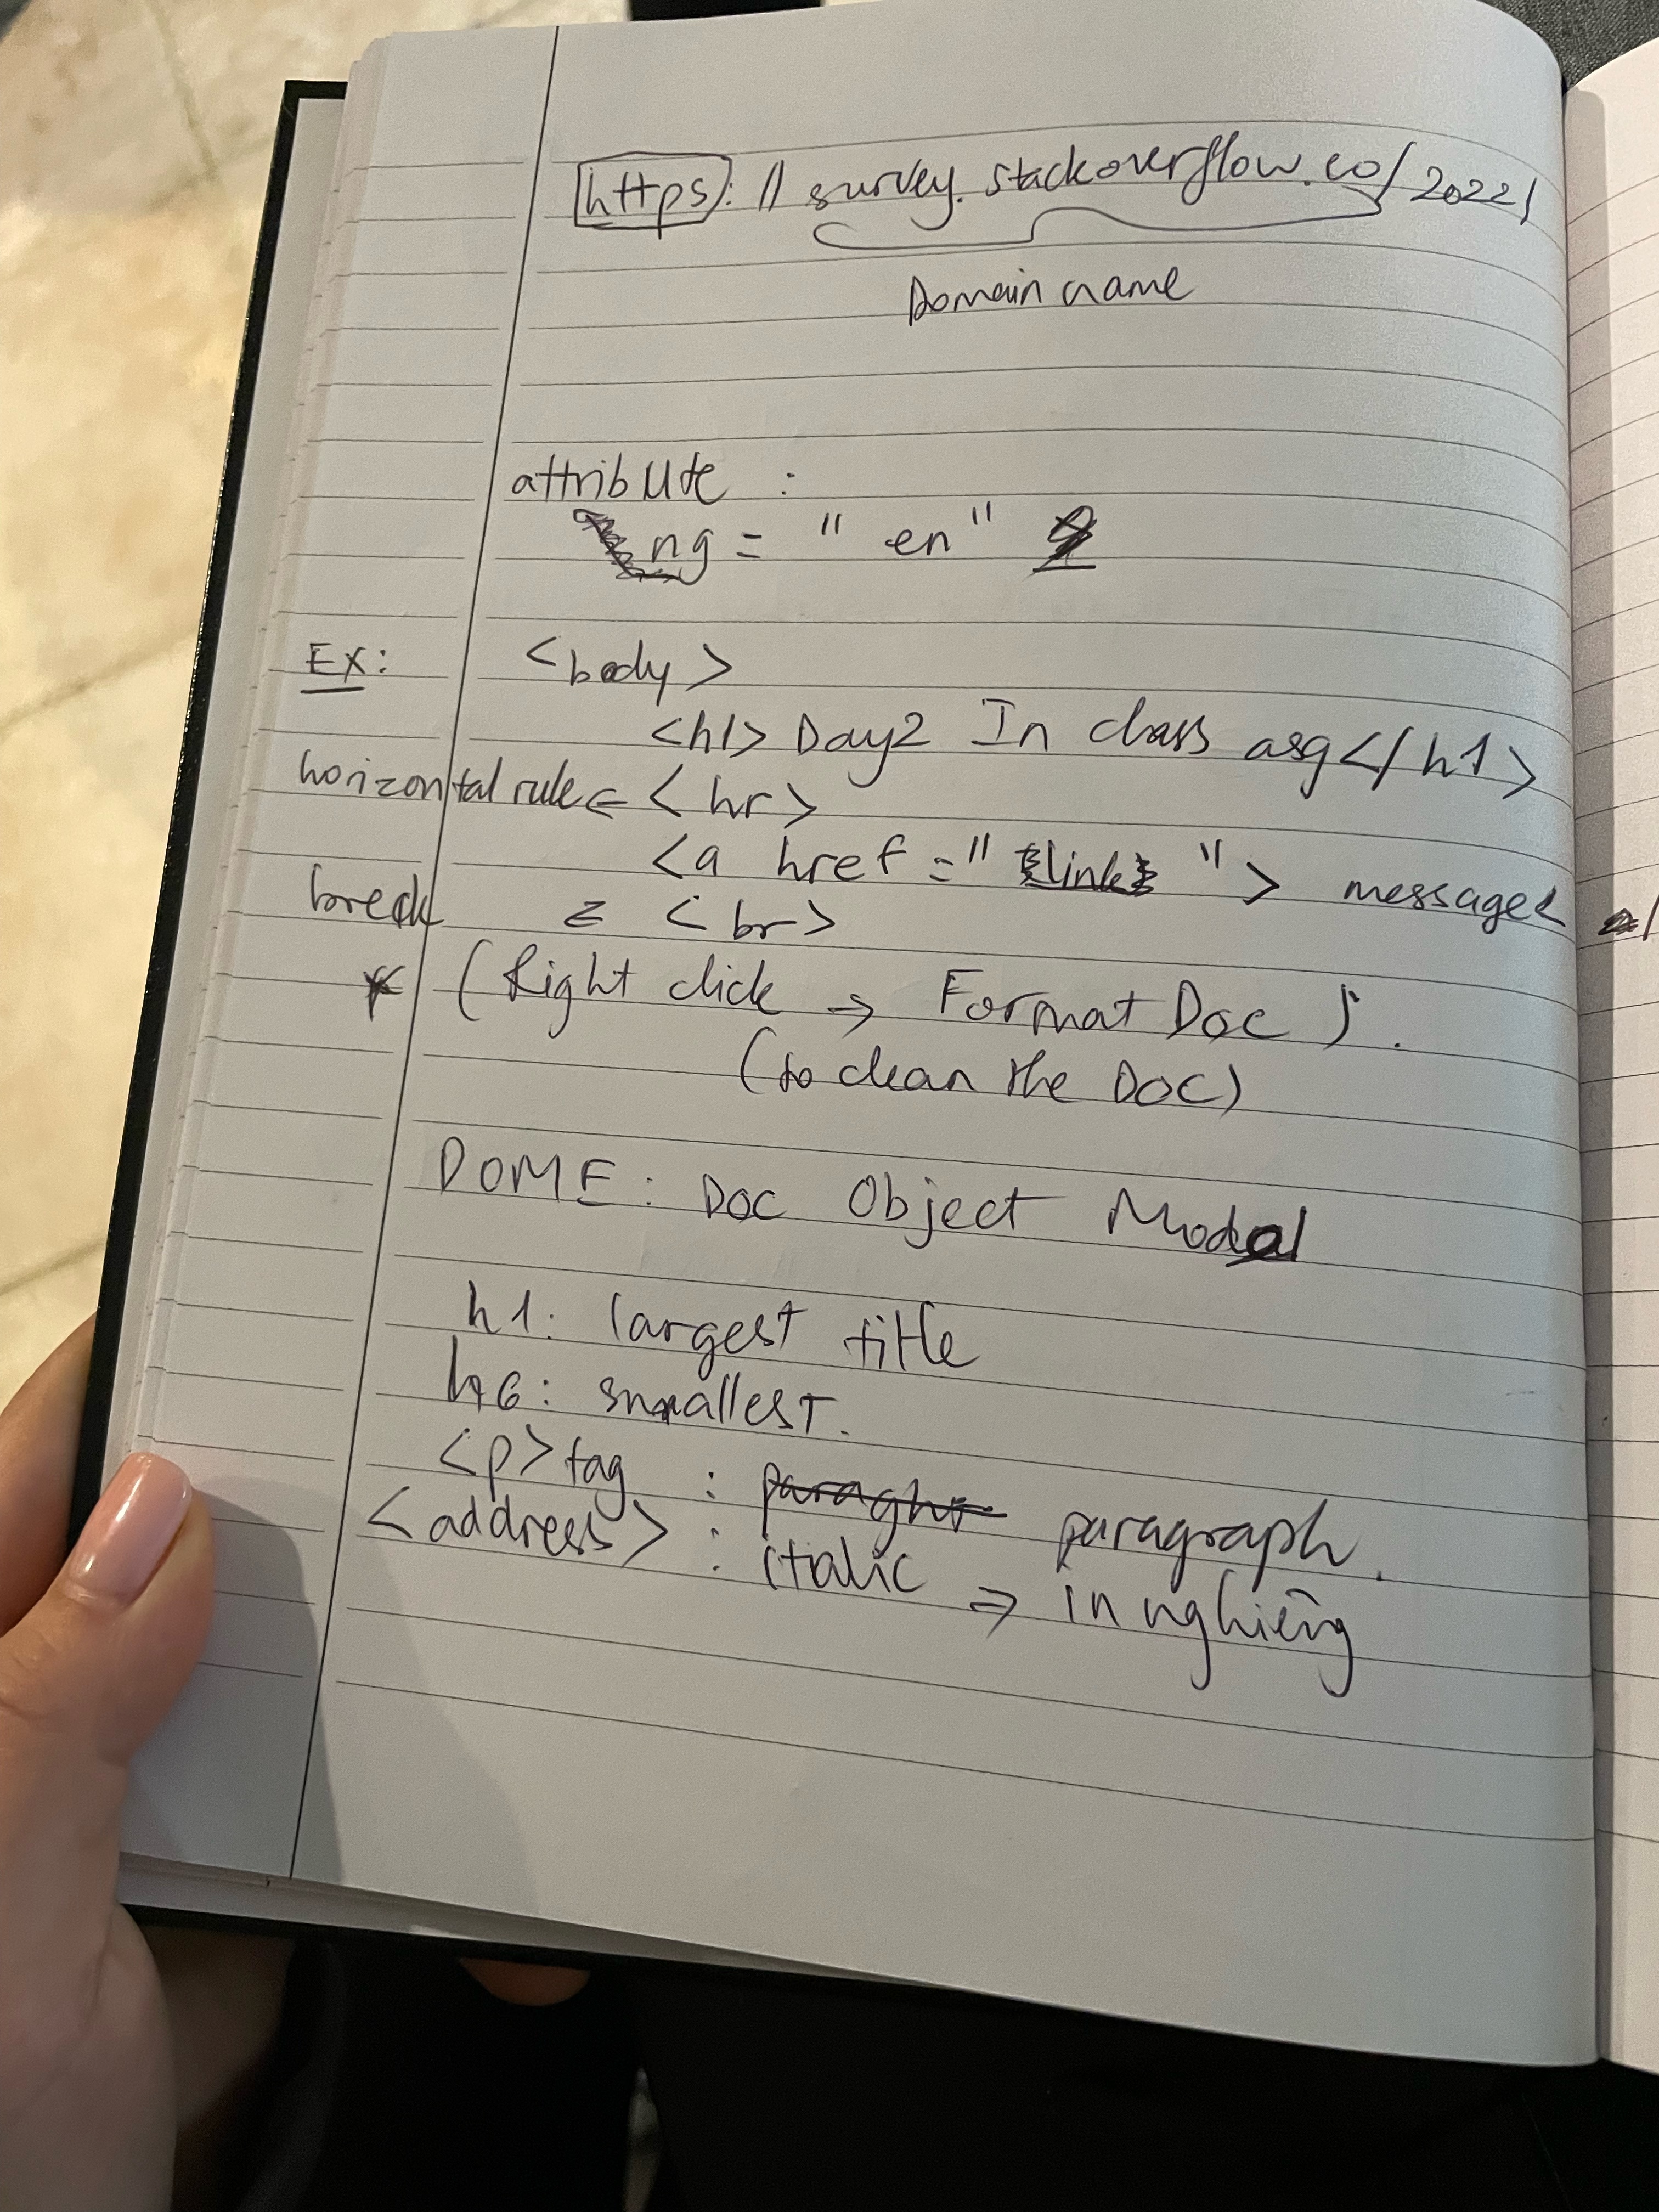 https://survey.stackoverflow.co/2022/
Domain name
attribute :
ng = "en"
EX: <body>
<h1> Day2 In class asg</h1>
horizontal rule ← <hr>
<a href="link"> message<
break = <br>
* (Right click → Format Doc).
(to clean the DOC)
DOME: DOC Object Modal
h1: largest title
h6: smallest.
<p> tag : paragraph.
<address> : italic ⇒ in nghiêng